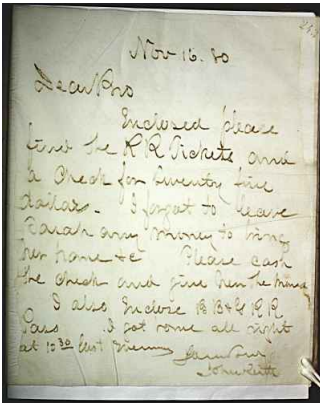 Nov 16. 80
Dear Bro
Enclosed please
find the RR Tickets and
a Check for twenty five
dollars. I forgot to leave
Sarah any money to bring
her home &c Please cash
the check and give her the money
I also Enclose B B & G R R
Pass I got home all right
at 10 30 last Evening